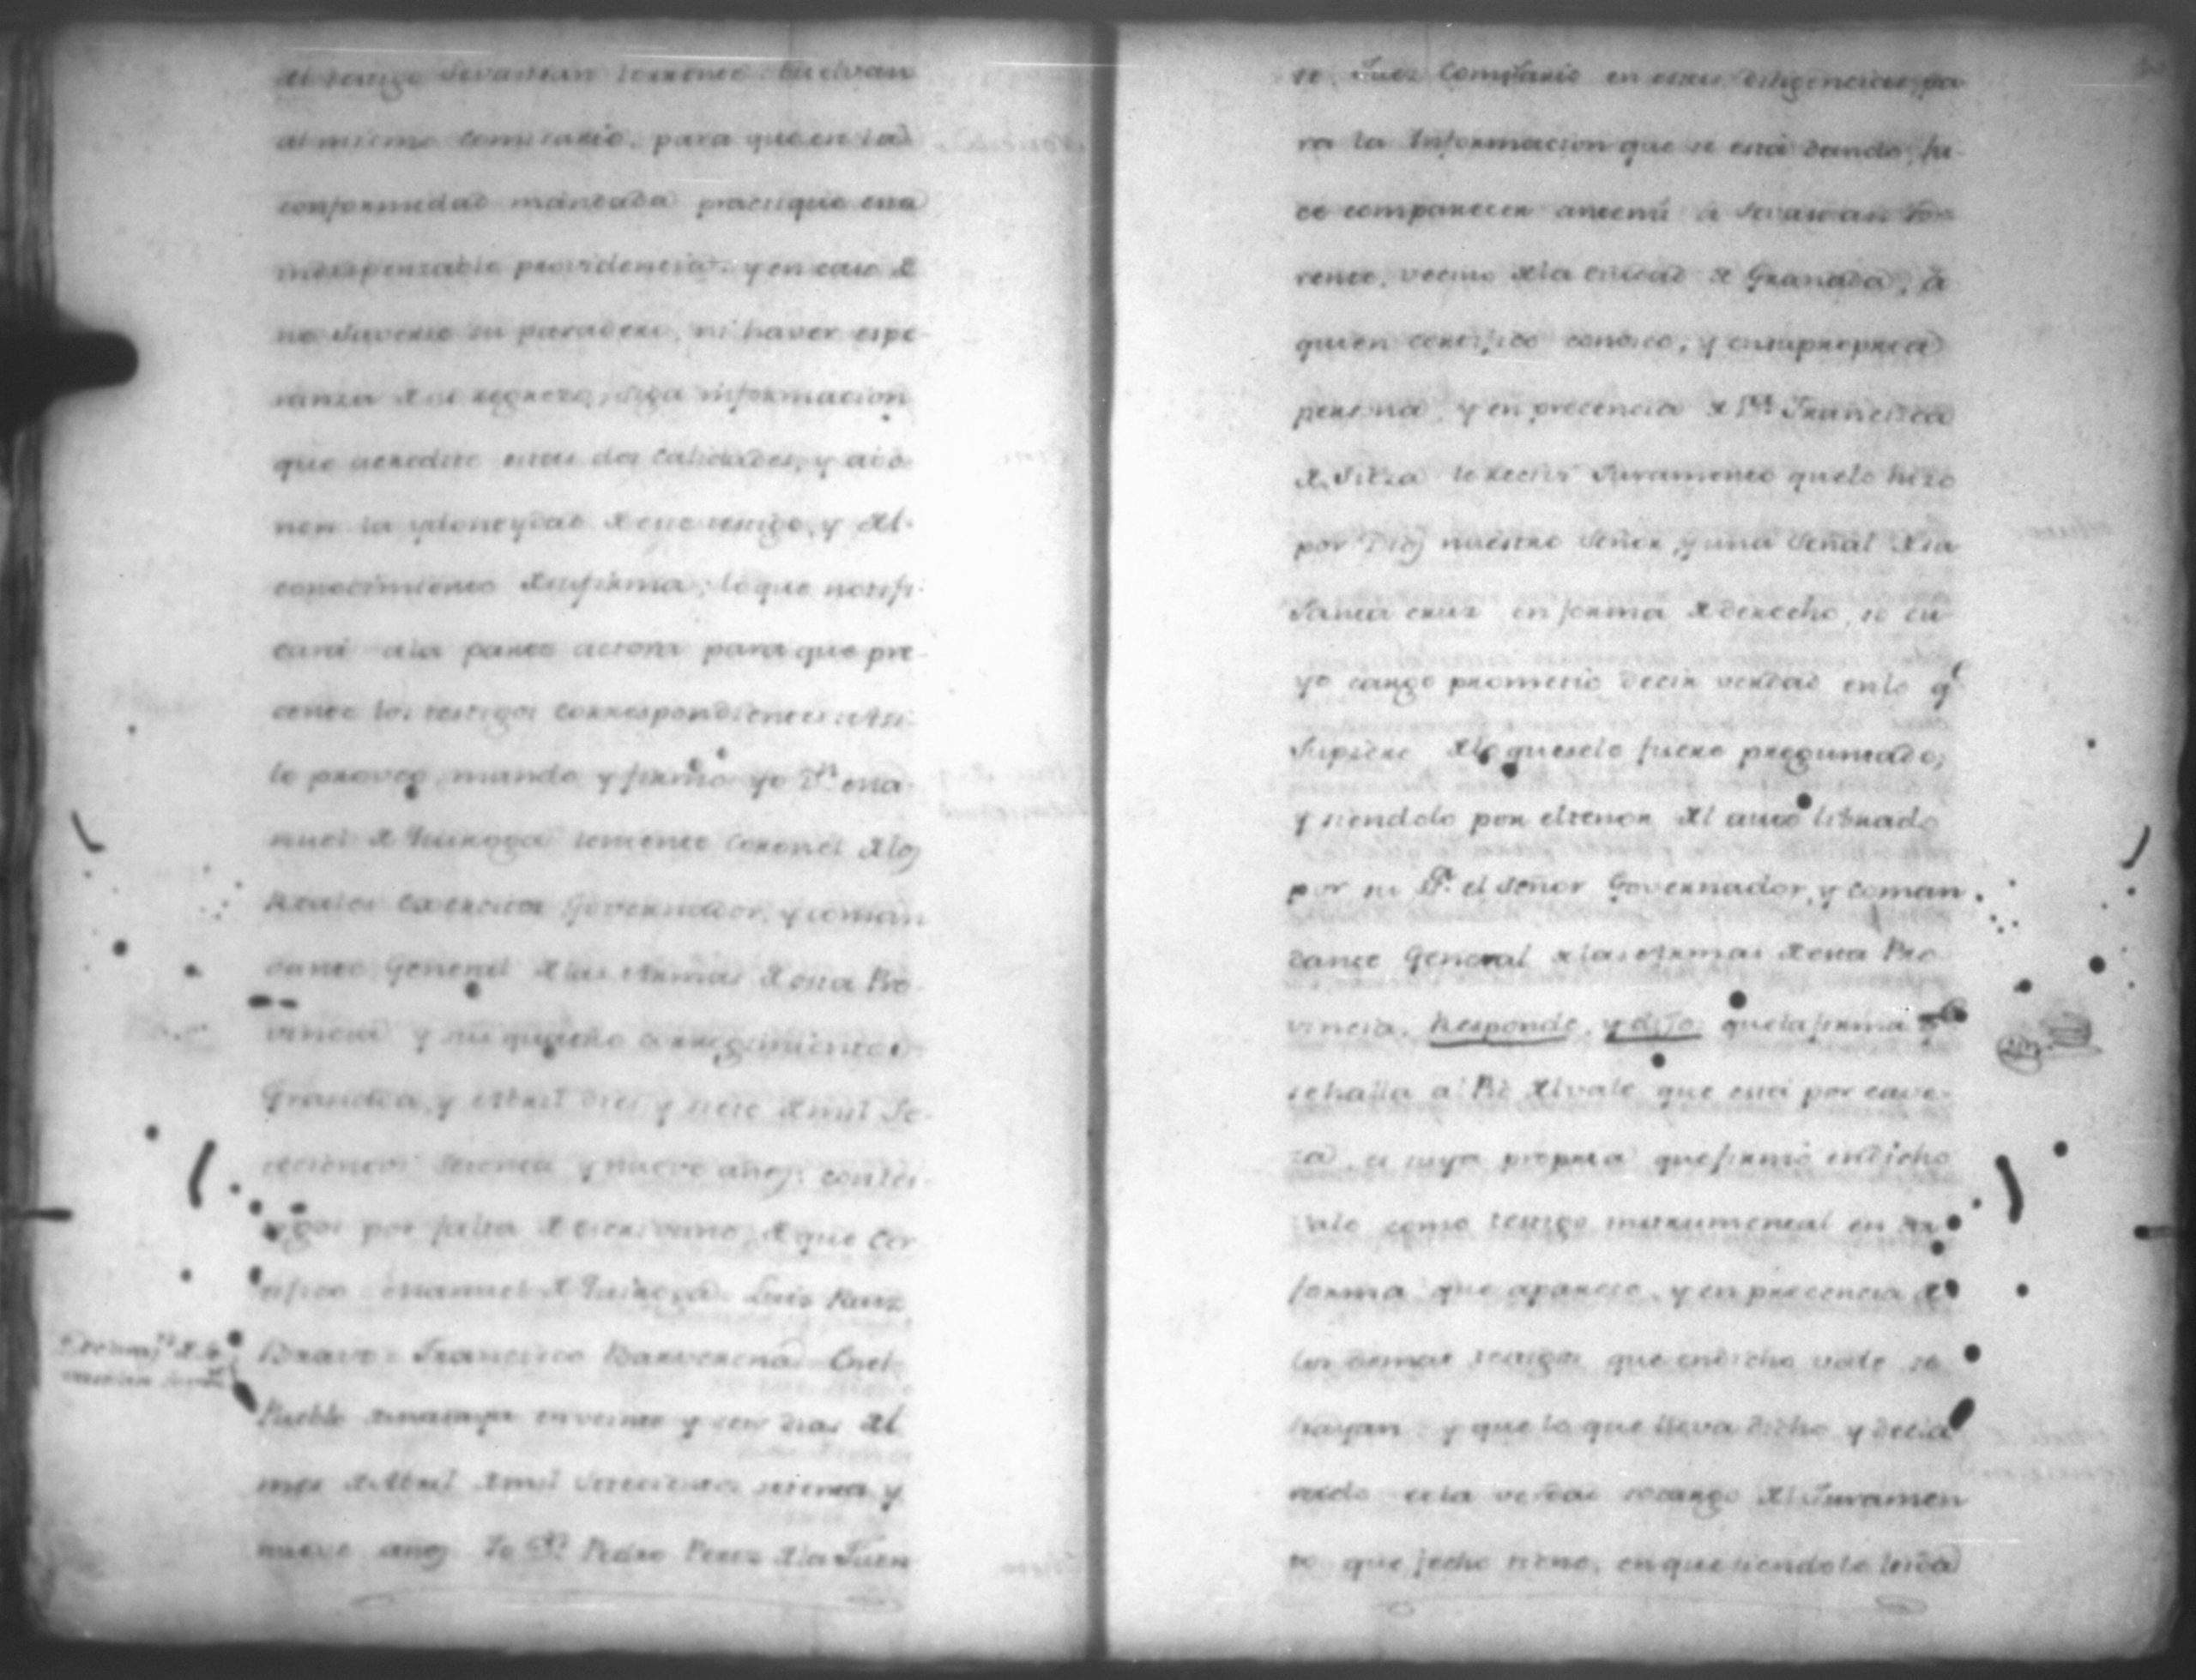 del testigo Sevastian Torrente buelvan
al mismo Comisario, para que en la
conformidad mandada practique esta
indispensable providencia. y en caso de
no saverse su paradero, ni haver espe-
ranza de su regreso, siga informacion
que acredite estas dos calidades, y abo-
nen la ydoneydad de este testigo, y del
conocimiento de su firma; lo que notifi-
cara a la parte actora para que pre-
cente los testigos correspondientes: Assi
lo proveo, mando y firmo yo Dn. Ma-
nuel de Quiroga teniente Coronel de los
Reales Exercitos Governador, y coman
dante General de las Armas de esta Pro-
vincia y su corregimiento
Granada, y Abril dies y siete de mil Se-
tecientos setenta y nueve años: con tes-
tigos por falta de escrivano, de que cer
tifico Manuel de Quiroga Luis Ruiz
Bravo Francisco Barverena En el
Pueblo Masaya en veinte y seis dias del
mes de Abril de mil setecientos setenta y
nueve años Yo Dn. Pedro Perez de la Fuen
te, Juez Comisario en estas diligencias, pa
ra la Informacion que se está dando, hi-
ce comparecer antemi a Sevastian Tor
rente, vecino de la Ciudad de Granada, á
quien certifico conosco, y en su propria
persona, y en precencia de Da. Francisca
de le recivi Juramento que lo hizo
por Dios nuestro Señor y una Señal de la
Santa cruz en forma de derecho, so cu
yo cargo prometio decir verdad en lo qe
Supiere de lo que se le fuere preguntado;
y siendolo por el tenor del auto librado
por su Sa. el Señor Governador, y Coman
dante General de las Armas de esta Pro
vincia. Responde, y dijo: que la firma q
se halla al Pie del vale que está por cave-
za, es suya propria que firmó en dicho
vale como testigo instrumental en la
forma que aparece, y en precencia de
los demas testigos que en dicho vale se
hayan y que lo que lleva dicho y decla
rado es la verdad so cargo del Juramen
to que fecho tiene, en que siendole leida